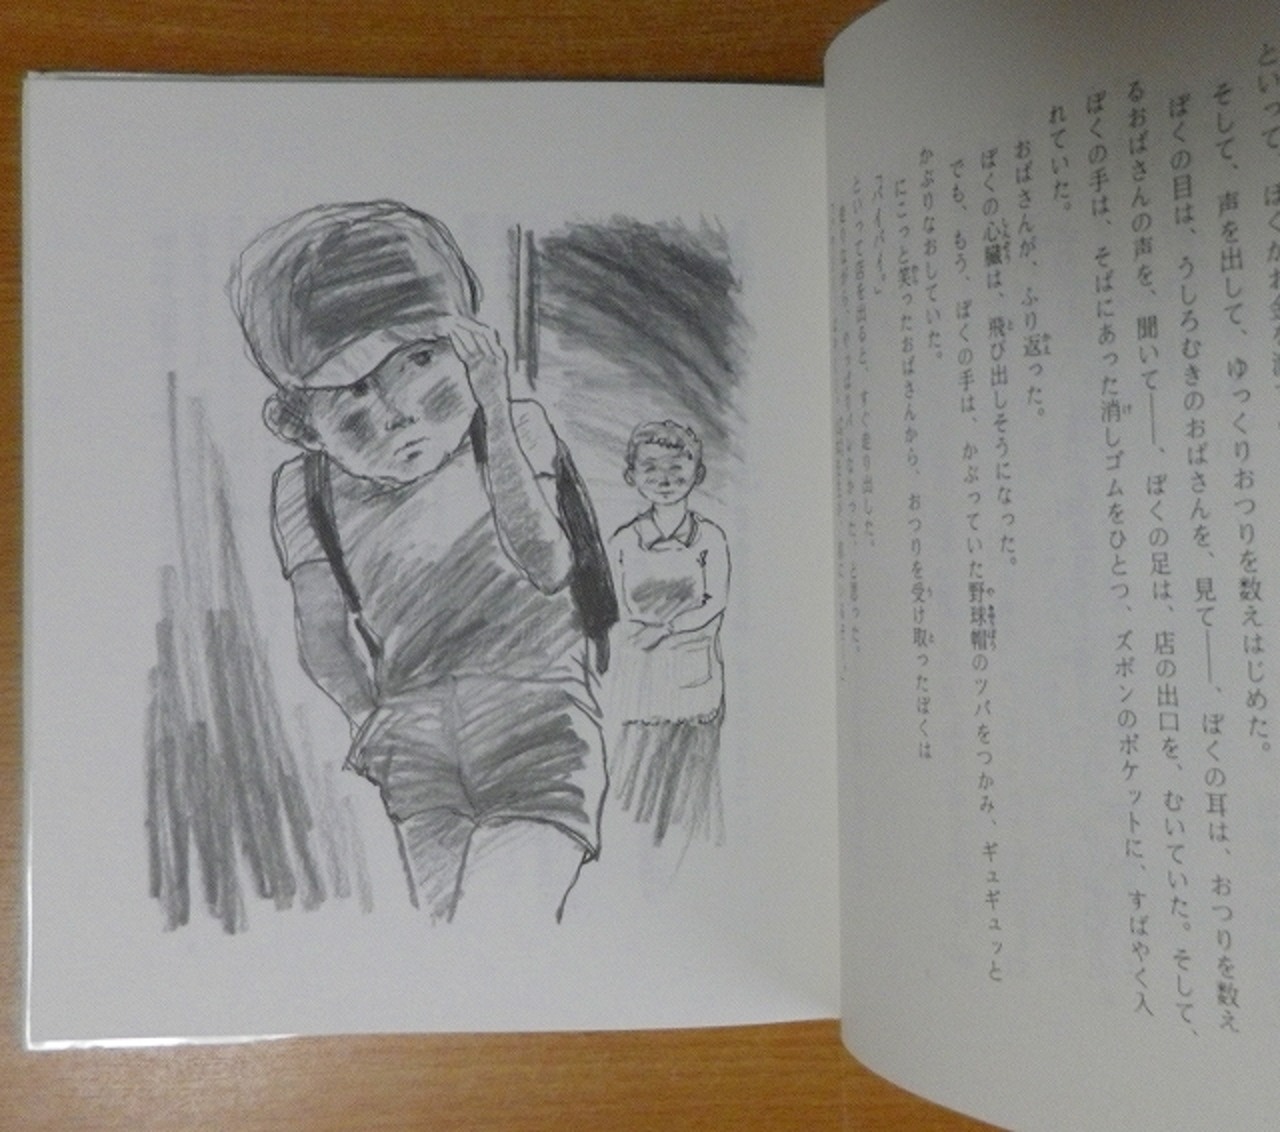 といって、ぼくがお金を
そして、声を出して、ゆっくりおつりを数えはじめた。
ぼくの目は、うしろむきのおばさんを、見て――、ぼくの耳は、おつりを数え
るおばさんの声を、聞いて――、ぼくの足は、店の出口を、むいていた。そして、
ぼくの手は、そばにあった消しゴムをひとつ、ズボンのポケットに、すばやく入
れていた。
おばさんが、ふり返った。
ぼくの心臓は、飛び出しそうになった。
でも、もう、ぼくの手は、かぶっていた野球帽のツバをつかみ、ギュギュッと
かぶりなおしていた。
にこっと笑ったおばさんから、おつりを受け取ったぼくは
「バイバイ。」
といって店を出ると、すぐ走り出した。